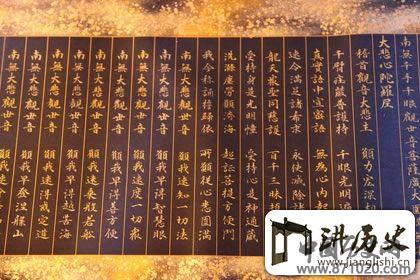 菩薩廣大
大悲心陀羅尼
稽首觀音大悲主 願力宏深相
千臂莊嚴普護持 千眼光
真實語中宣密語 無為心內起
速令滿足諸希求 永使滅除
龍天眾聖同慈護 百千三昧
受持身是光明幢 受持心是神通藏
洗滌塵勞願濟海 超證菩提方便門
我今稱誦誓歸依 所願從心悉圓滿
南無大悲觀世音 願我速知一切法
南無大悲觀世音 願我早得智慧眼
南無大悲觀世音 願我速度一切眾
南無大悲觀世音 願我早得善方便
南無大悲觀世音 願我速乘般若船
南無大悲觀世音 願我早得越苦海
南無大悲觀世音 願我速得戒定道
南無大悲觀世音 願我早登涅槃山
讲历史
www.jianglishi.cn
www.871020.com